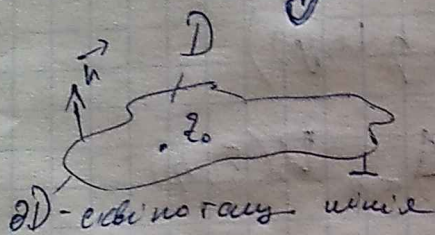 D
n
z₀
∂D - еквіпотенц. лінія